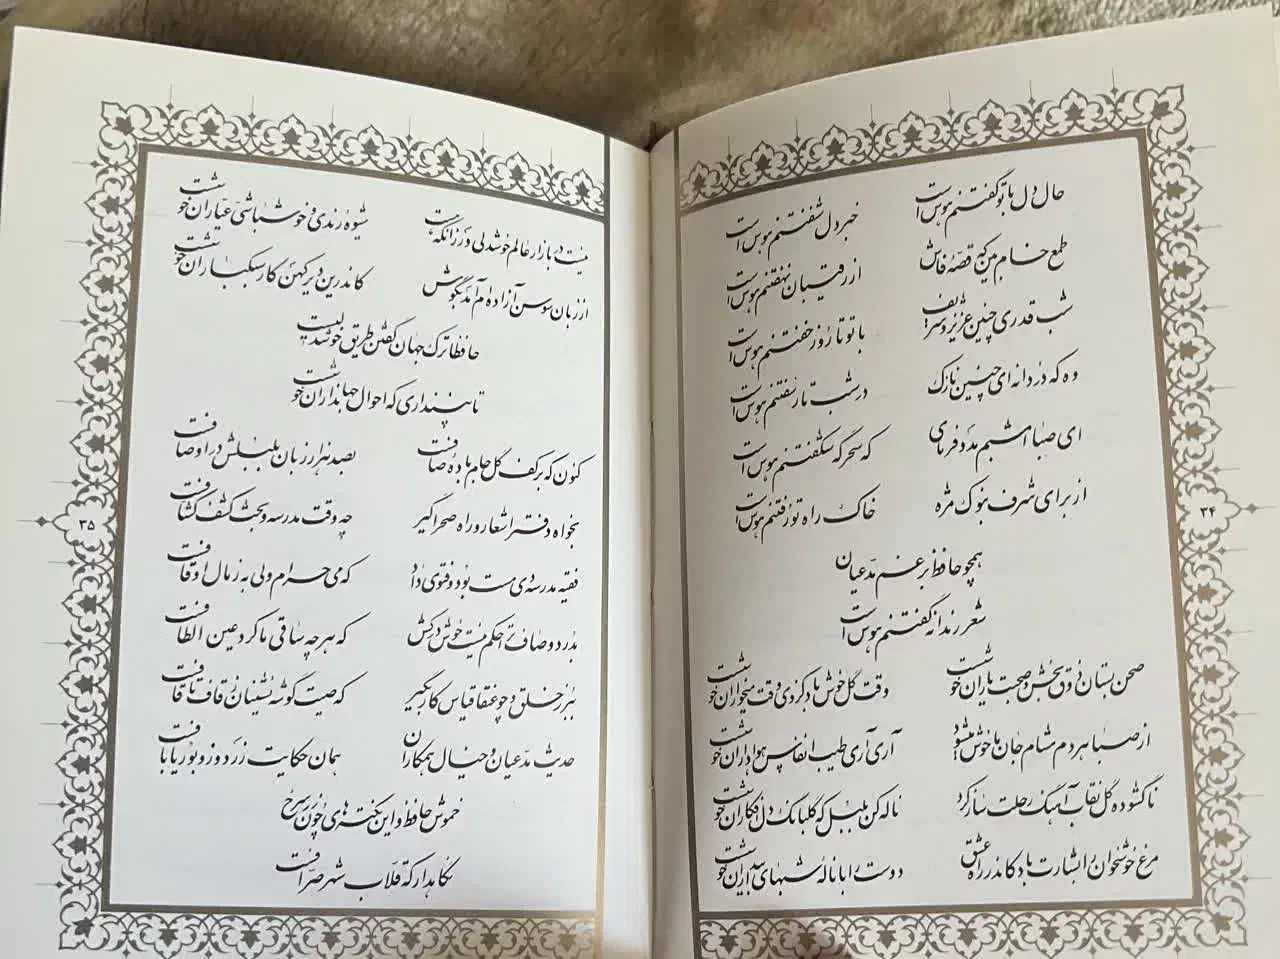 حال دل با تو گفتنم هوس است خبر دل شفتنم هوس است
طمع خام بین که قصه فاش از رقیبان نهفتنم هوس است
شب قدری چنین عزیز و شریف با تو تا روز خفتنم هوس است
وه که دردانه ای چنین نازک در شب تار سفتنم هوس است
ای صبا امشبم مدد فرمای که سحرگه شکفتنم هوس است
از برای شرف بنوک مژه خاک راه تو رفتنم هوس است
همچو حافظ برغم مدعیان
شعر رندانه گفتنم هوس است
صحن بستان ذوق بخش و صحبت یاران خوشست وقت گل خوش باد کز وی وقت میخواران خوشست
از صبا هر دم مشام جان ما خوش میشود آری آری طیب انفاس هواداران خوشست
ناگشوده گل نقاب آهنگ رحلت ساز کرد ناله کن بلبل که گلبانگ دل افکاران خوشست
مرغ خوشخوان را بشارت باد کاندر راه عشق دوست را با ناله شبهای بیداران خوشست
۳۴
نیست در بازار عالم خوشدلی ور زانکه هست شیوه رندی و خوشباشی عیاران خوشست
از زبان سوسن آزاده ام آمد بگوش کاندرین دیر کهن کار سبکباران خوشست
حافظا ترک جهان گفتن طریق خوشدلیست
تا نپنداری که احوال جهانداران خوشست
کنون که بر کف گل جام باده صافست بصد هزار زبان بلبلش در اوصافست
بخواه دفتر اشعار و راه صحرا گیر چه وقت مدرسه و بحث کشف کشافست
فقیه مدرسه دی مست بود و فتوی داد که می حرام ولی به ز مال اوقافست
بدرد و صاف ترا حکم نیست خوش درکش که هر چه ساقی ما کرد عین الطافست
ببر ز خلق و چو عنقا قیاس کار بگیر که صیت گوشه نشینان ز قاف تا قافست
حدیث مدعیان و خیال همکاران همان حکایت زردوز و بوریابافست
خموش حافظ و این نکته های چون زر سرخ
نگاهدار که قلاب شهر صرافست
۳۵